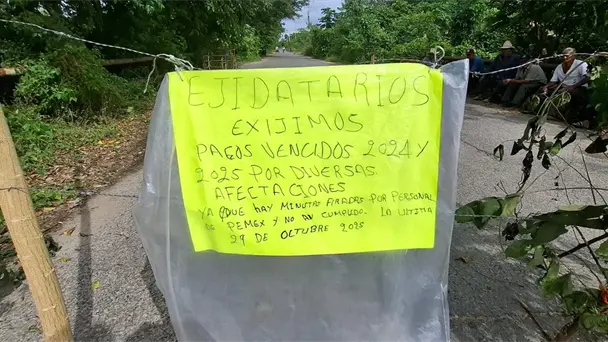 EJIDATARIOS
EXIJIMOS
PAGOS VENCIDOS 2024 Y
2025 POR DIVERSAS
AFECTACIONES
YA QUE HAY MINUTAS FIRADAS POR PERSONAL
DE PEMEX Y NO AN CUMPLIDO. LA ULTIMA
29 DE OCTUBRE 2025